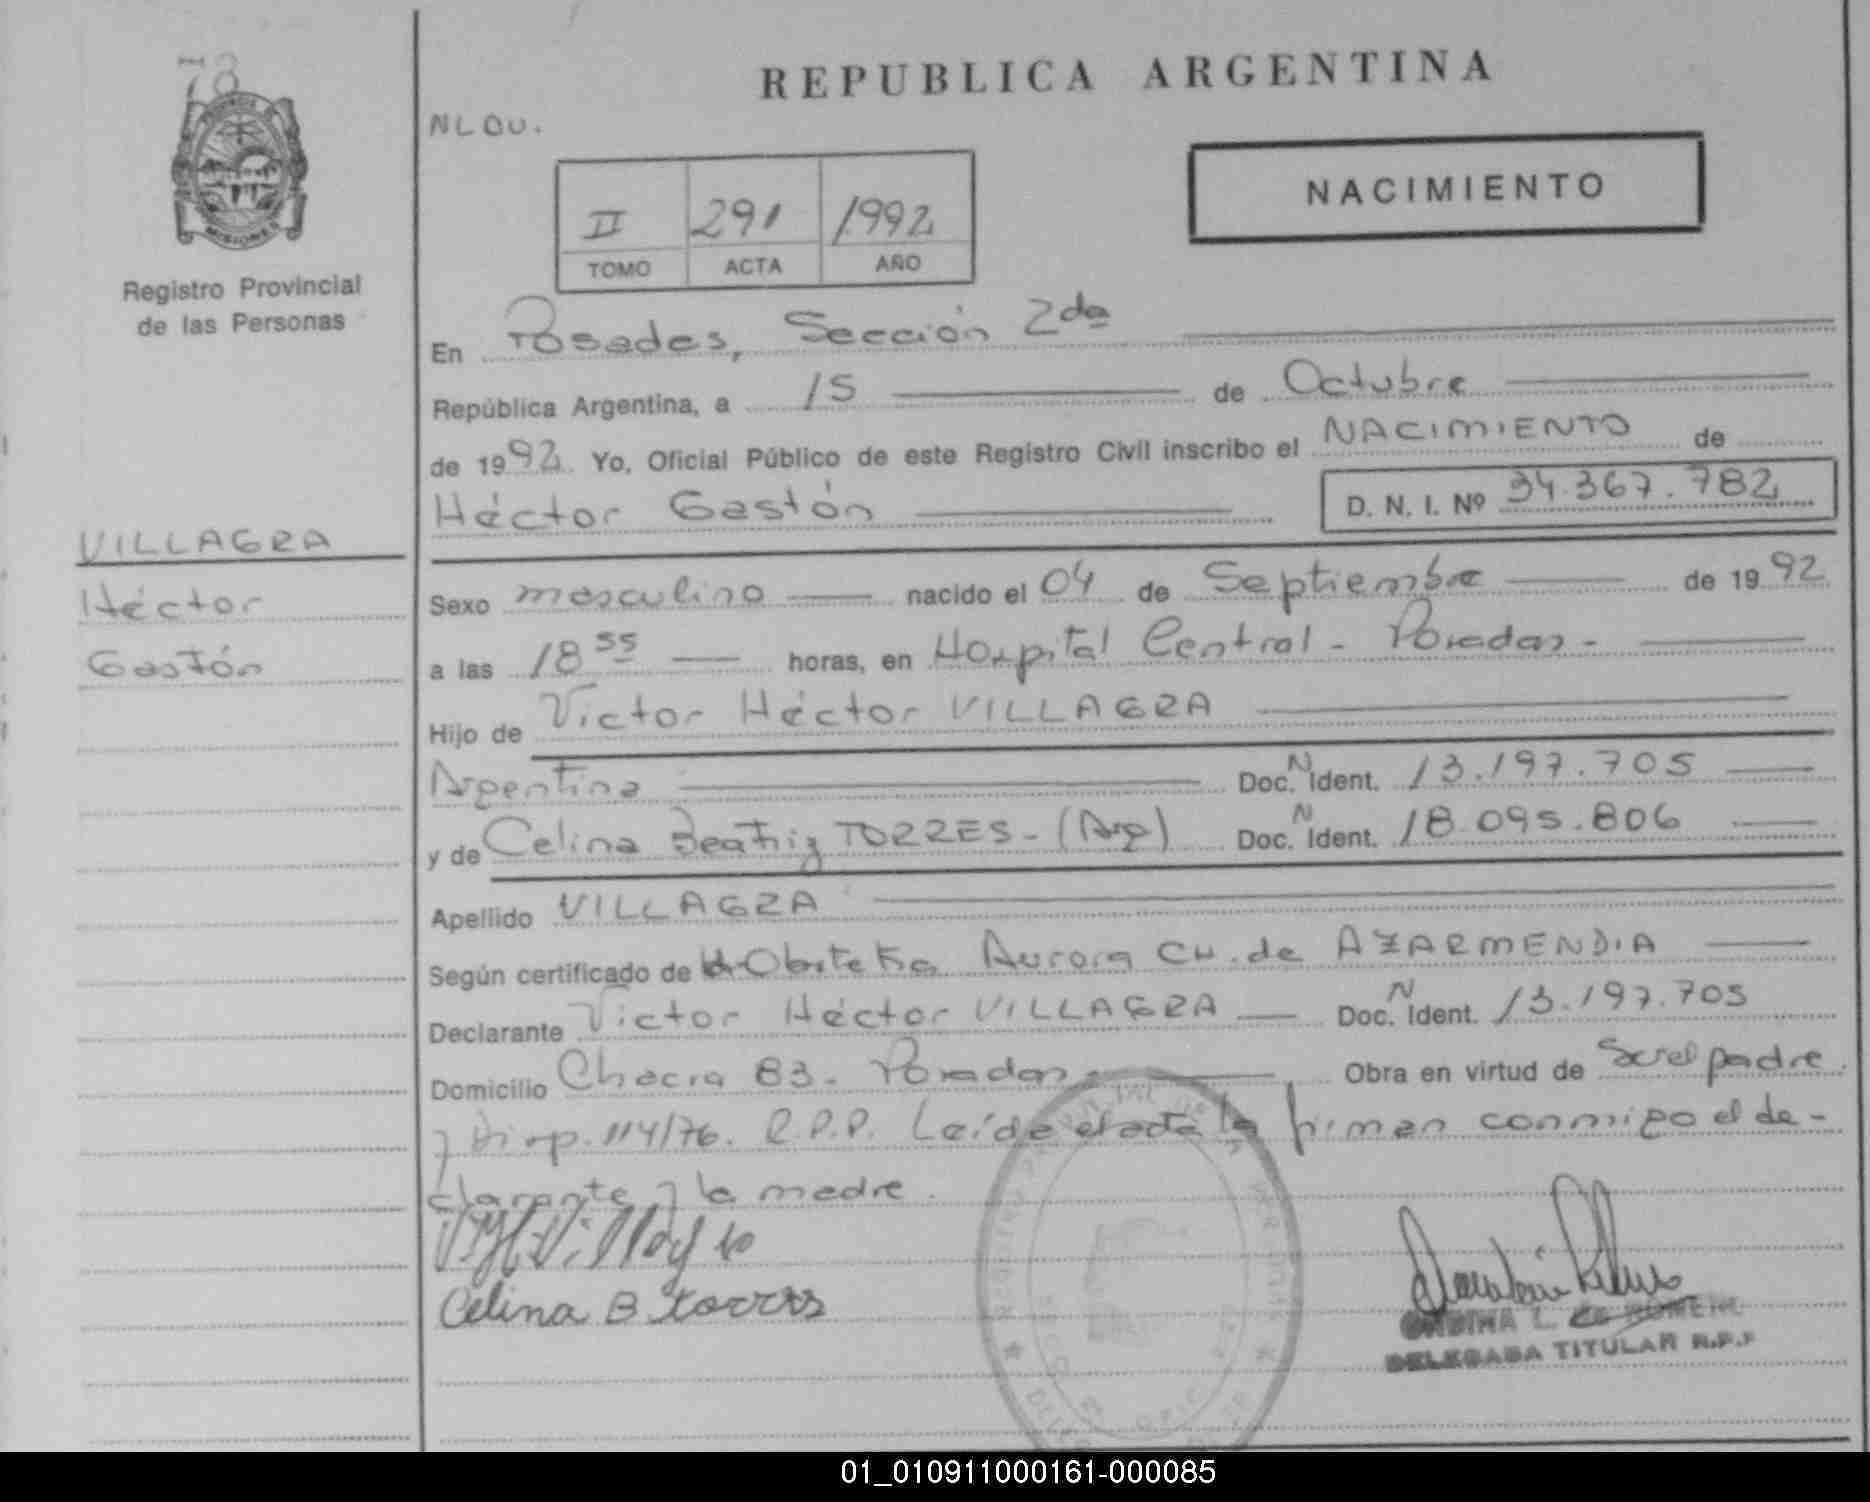 78
REPUBLICA ARGENTINA
NLQU.
MISIONES
Registro Provincial
de las Personas
NACIMIENTO
II 291 1992
TOMO ACTA AÑO
En Posadas, Sección 2da
República Argentina, a 15 de Octubre
de 1992. Yo, Oficial Público de este Registro Civil inscribo el NACIMIENTO de
Héctor Gastón D. N. I. Nº 34.367.782
VILLAGRA
Héctor
Gastón
Sexo masculino nacido el 04 de Septiembre de 1992
a las 18 55 horas, en Hospital Central - Posadas -
Hijo de Victor Héctor VILLAGRA
Argentina Doc. N Ident. 13.197.705
y de Celina Beatriz TORRES - (Arg) Doc. N Ident. 18.095.806
Apellido VILLAGRA
Según certificado de Obstetra Aurora CH. de AZARMENDIA
Declarante Victor Héctor VILLAGRA Doc. N Ident. 13.197.705
Domicilio Chacra 83 - Posadas - Obra en virtud de Ser el padre
y Disp. 114/76. R.P.P. Leída el acta la firman conmigo el de-
clarante y la madre.
Celina B Torres
DELEGADA TITULAR R.P.P
01_010911000161-000085